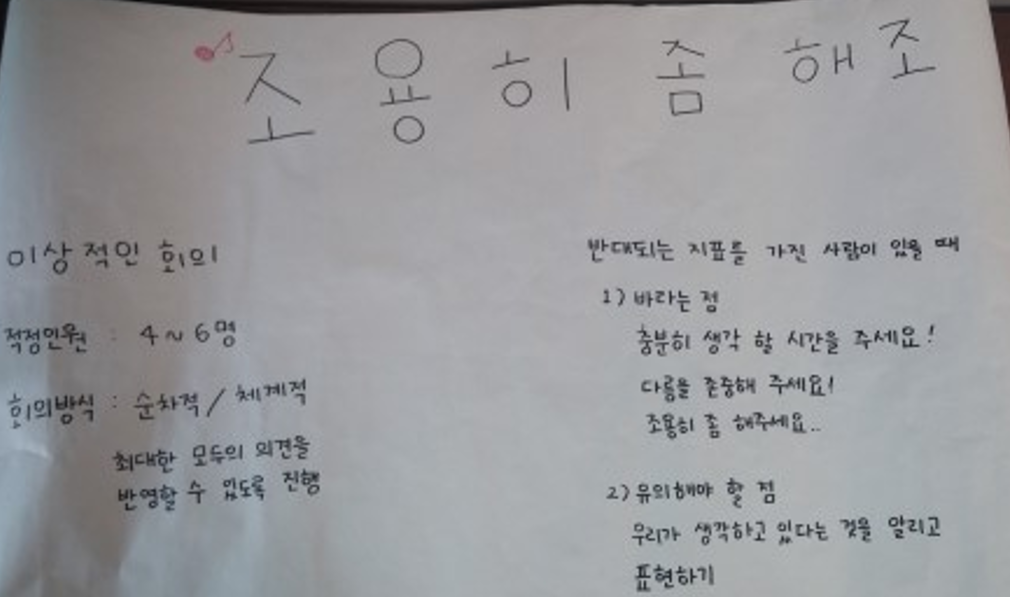 조용히 좀 해조
이상적인 회의
적정인원 : 4~6명
회의방식 : 순차적 / 체계적
최대한 모두의 의견을
반영할 수 있도록 진행
반대되는 지표를 가진 사람이 있을 때
1) 바라는 점
충분히 생각 할 시간을 주세요!
다름을 존중해 주세요!
조용히 좀 해주세요..
2) 유의해야 할 점
우리가 생각하고 있다는 것을 알리고
표현하기